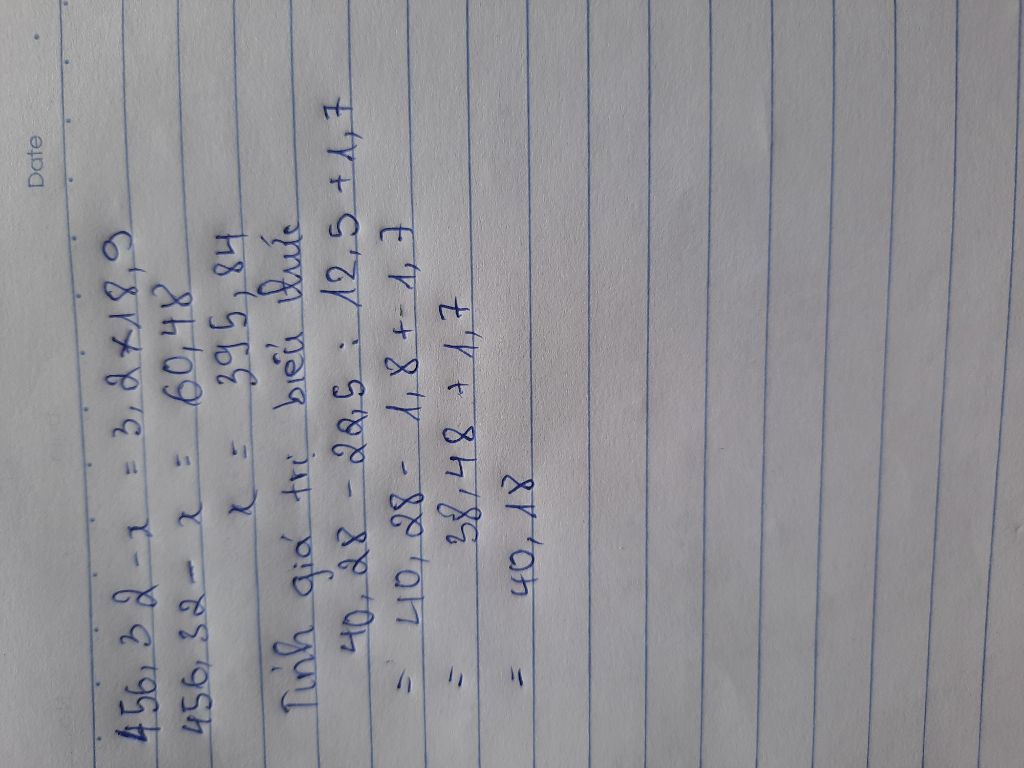 Date
456,32 - x = 3,2 x 18,9
456,32 - x = 60,48
x = 395,84
Tính giá trị biểu thức
40,28 - 22,5 : 12,5 + 1,7
= 40,28 - 1,8 + 1,7
= 38,48 + 1,7
= 40,18